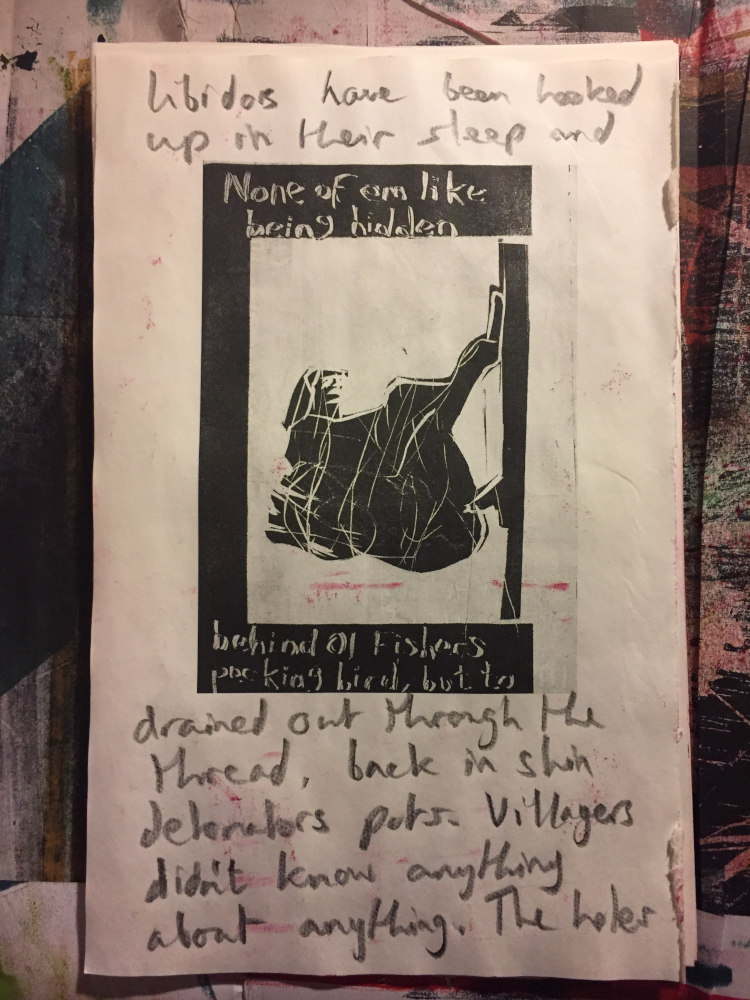 libidos have been hooked
up in their sleep and
None of em like
being hidden
behind Ol Fishers
pecking bird, but to
drained out through the
thread, back in skin
detonators pots. Villagers
didn't know anything
about anything. The holes